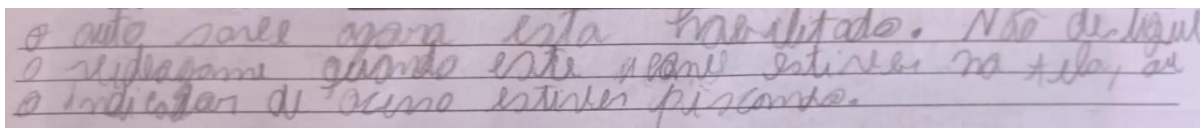 o auto save agora esta habilitado. Não desligue
o videogame quando este icone estiver na tela, ou
o indicador de acesso estiver piscando.